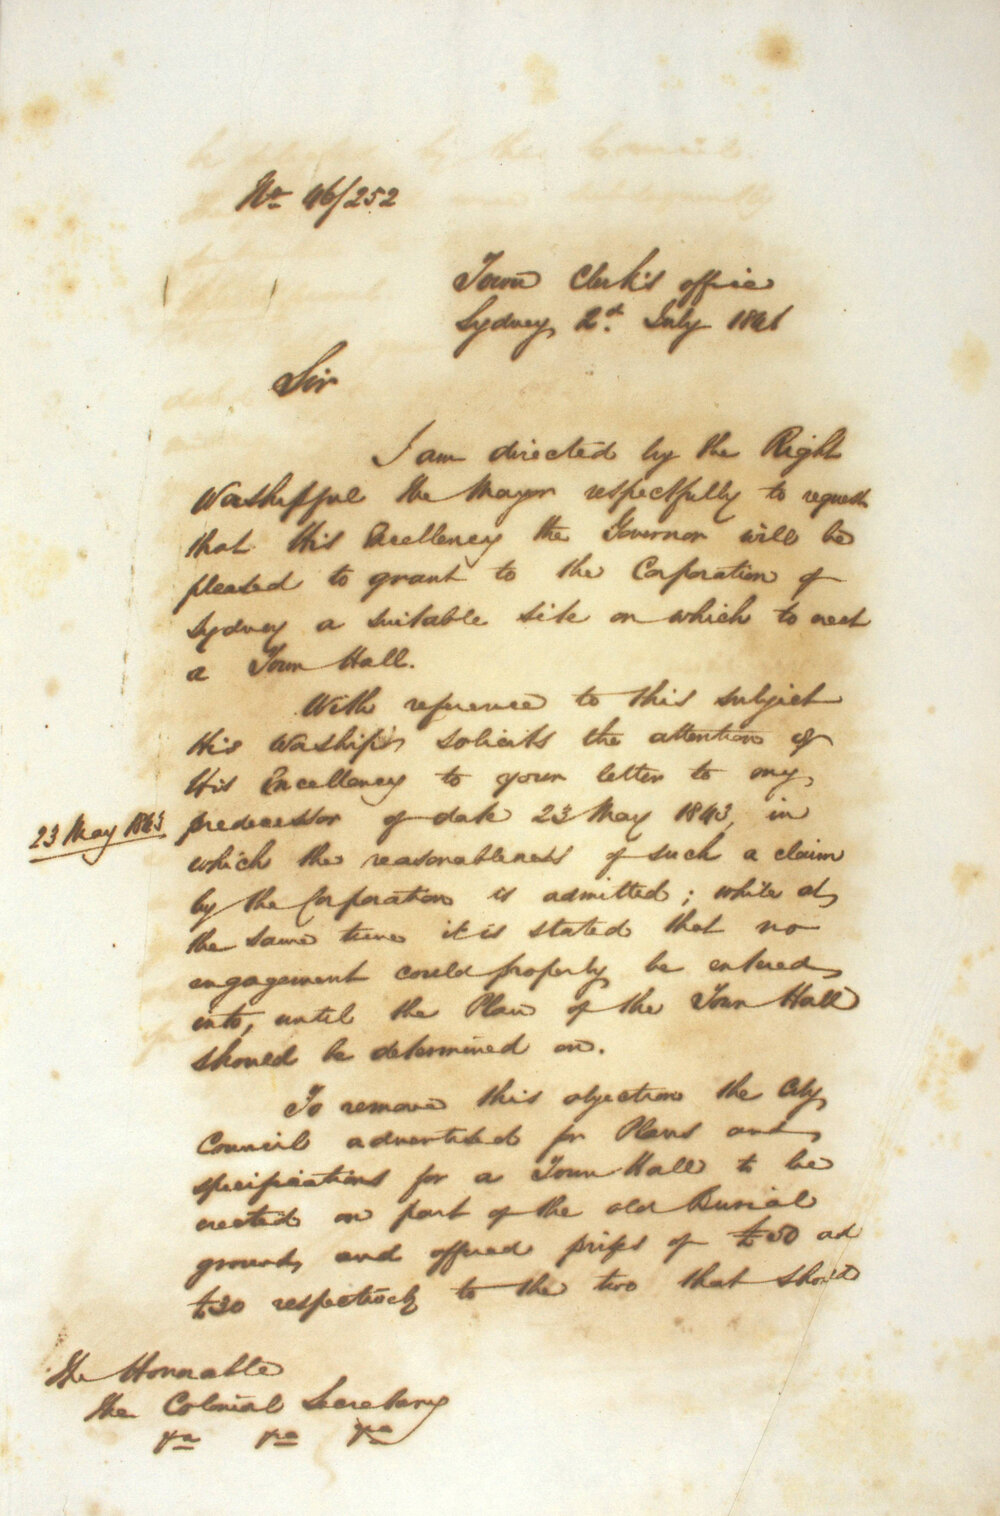 No. 46/252
Town Clerk's office
Sydney, 2d. July 1846
Sir
I am directed by the Right
Worshipful the Mayor respectfully to request
that His Excellency the Governor will be
pleased to grant to the Corporation of
Sydney a suitable site on which to erect
a Town Hall.
With reference to this subject
His Worship solicits the attention of
His Excellency to your letter to my
23 May 1843
predecessor of date 23 May 1843, in
which the reasonableness of such a claim
by the Corporation is admitted; while at
the same time it is stated that no
engagement could properly be entered
into, until the Plan of the Town Hall
should be determined on.
To remove this objection the City
Council advertised for Plans and
specifications for a Town Hall to be
erected on part of the old Burial
ground, and offered prizes of £50 and
£30 respectively to the two that should
The Honorable
the Colonial Secretary
&a &a &a